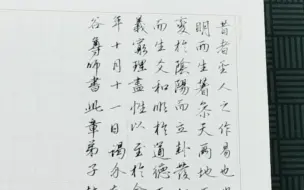 昔者聖人之作易也
明而生蓍叅天兩地而
變於陰陽而立卦發
而生爻和順於道德
義窮理盡性以至於命
年十月十一日謁
谷尊師書此章弟子